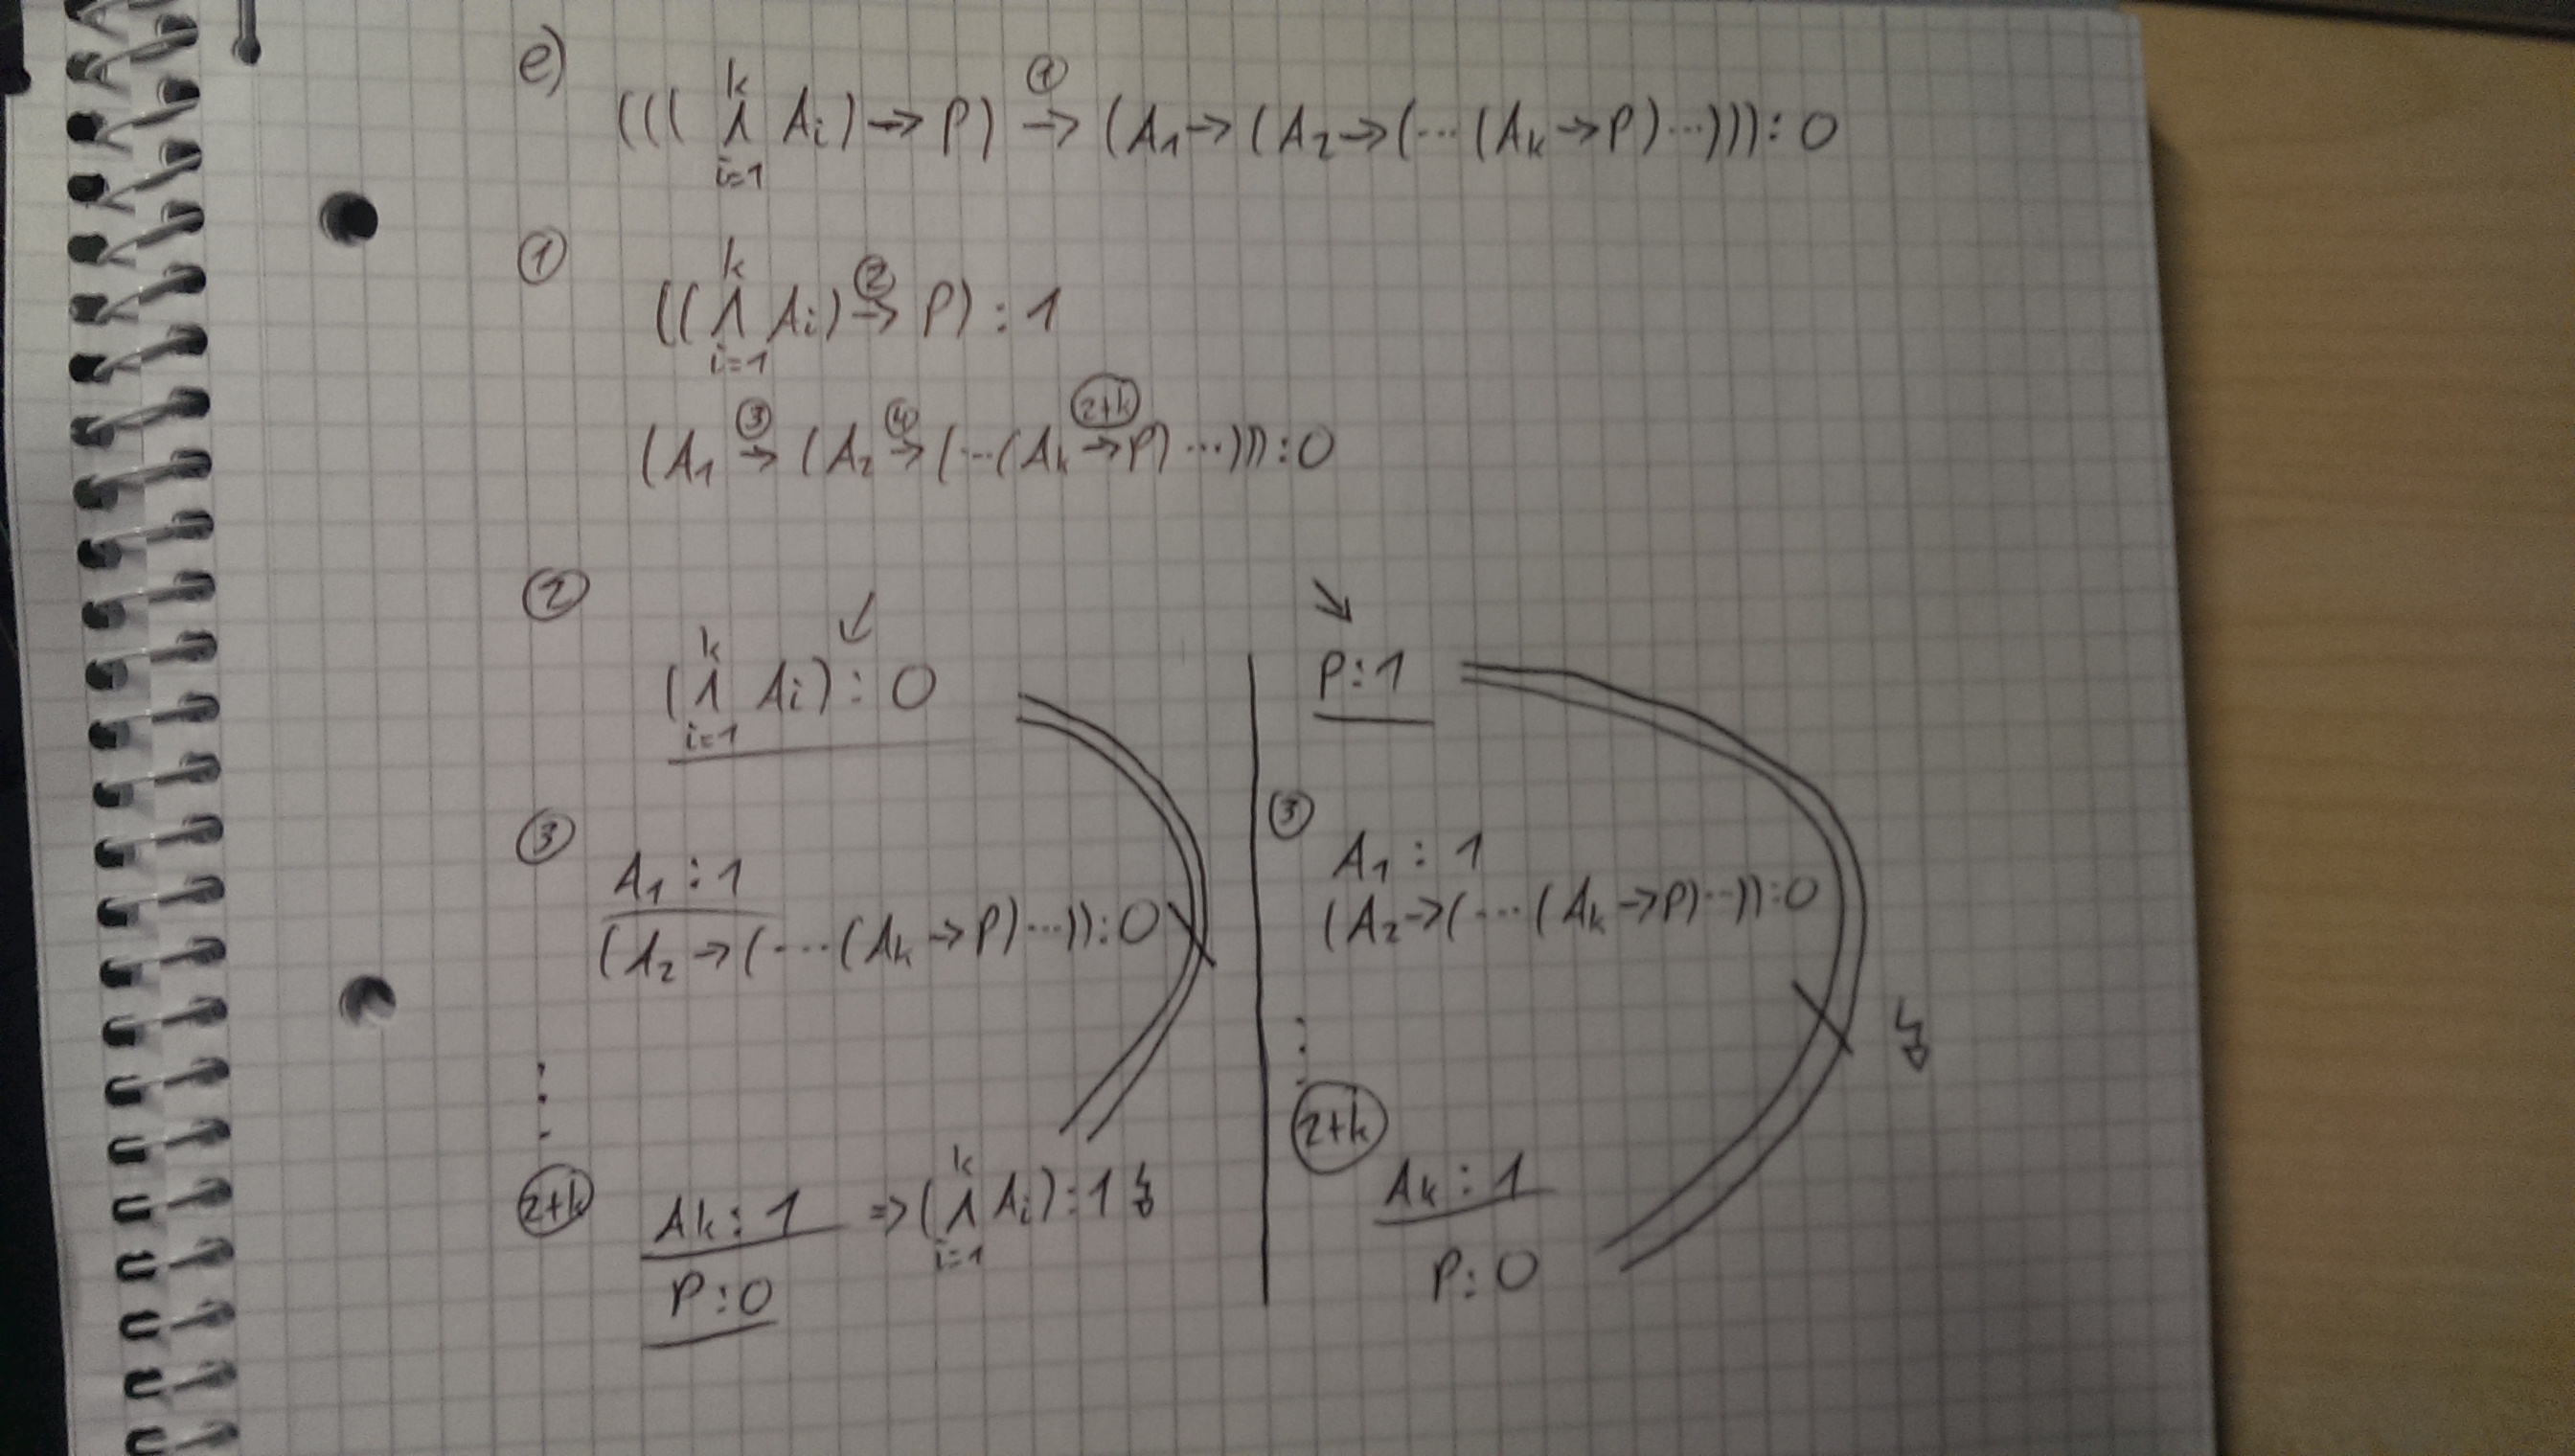 e)
(((⋀_{i=1}^{k} Ai) → P) →① (A₁ → (A₂ → (··· (Aₖ → P) ···))) : 0
①
((⋀_{i=1}^{k} Ai) →② P) : 1
(A₁ →③ (A₂ →④ (··· (Aₖ →(2+k) P) ···))) : 0
②
↙
(⋀_{i=1}^{k} Ai) : 0
③
A₁ : 1
(A₂ → (···· (Aₖ → P) ···)) : 0
⋮
(2+k)
Ak : 1 ⇒ (⋀_{i=1}^{k} Ai) : 1 ↯
P : 0
↘
P : 1
③
A₁ : 1
(A₂ → (···· (Aₖ → P) ···)) : 0
↯
⋮
(2+k)
Aₖ : 1
P : 0